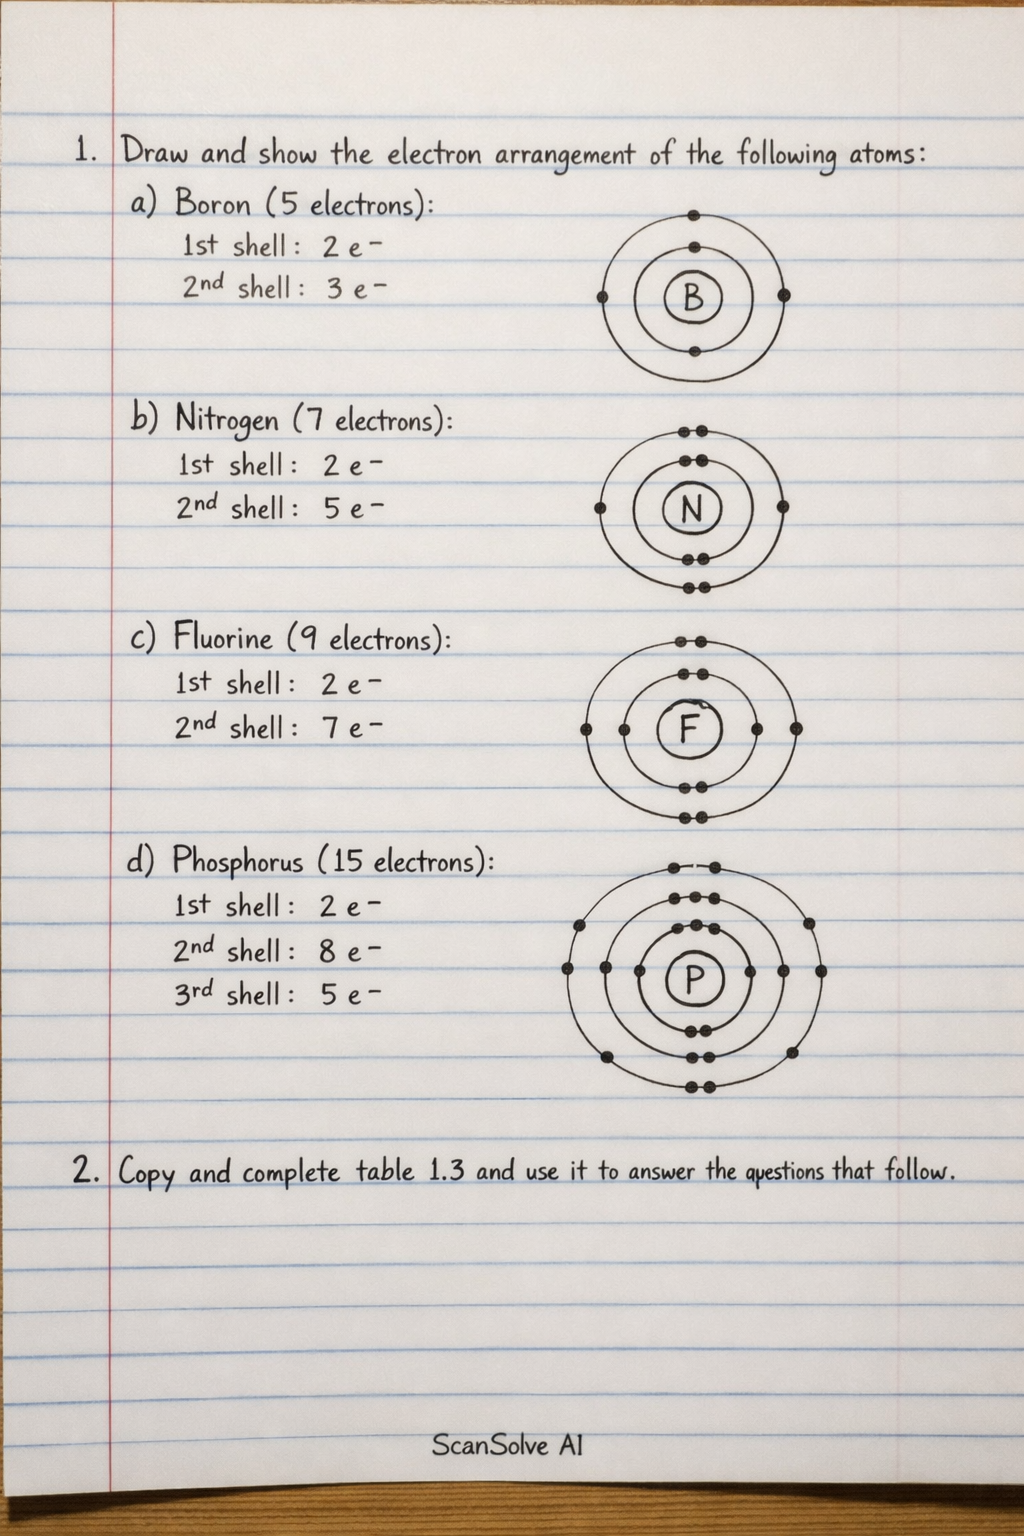 1. Draw and show the electron arrangement of the following atoms:
a) Boron (5 electrons):
1st shell: 2 e⁻
2nd shell: 3 e⁻
B
b) Nitrogen (7 electrons):
1st shell: 2 e⁻
2nd shell: 5 e⁻
N
c) Fluorine (9 electrons):
1st shell: 2 e⁻
2nd shell: 7 e⁻
F
d) Phosphorus (15 electrons):
1st shell: 2 e⁻
2nd shell: 8 e⁻
3rd shell: 5 e⁻
P
2. Copy and complete table 1.3 and use it to answer the questions that follow.
ScanSolve AI